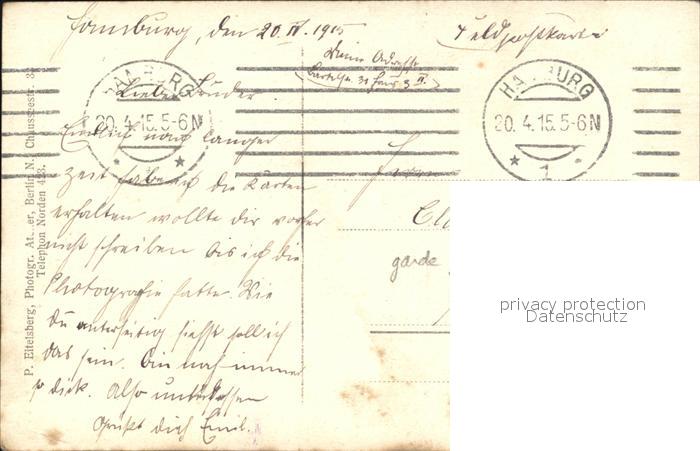 Hamburg, den 20 IV. 1915
Feldpostkarte
Meine Adresse
Bartelsstr. 31 Haus 3 II.
HAMBURG
20. 4. 15. 5-6 N
HAMBURG
20. 4. 15. 5-6 N
* 1 *
Lieber Bruder
Endlich nach langer
Zeit habe ich die Karten
erhalten wollte dir vorher
nicht schreiben bis ich die
Photografie hatte. Wie
du unterseitig siehst soll ich
das sein. Bin noch immer
so dick. Also
Grüßt dich Emil.
garde
P. Eitelsberg, Photogr. At...er, Berlin N., Chausseestr.
Telephon Norden
privacy protection
Datenschutz